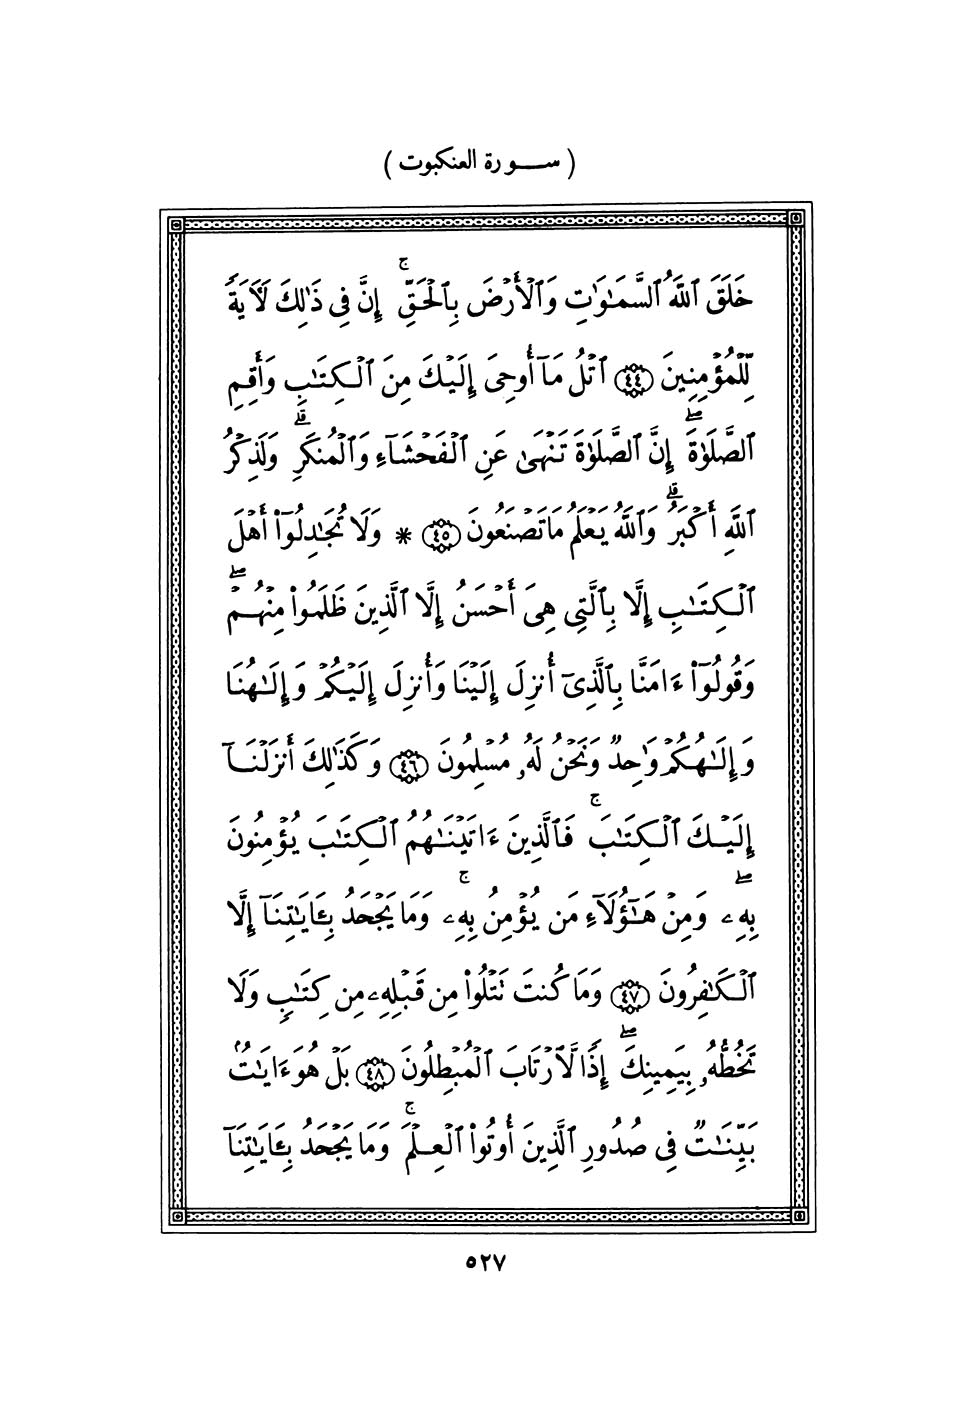 ( ســورة العنكبوت )
خَلَقَ ٱللَّهُ ٱلسَّمَـٰوَٰتِ وَٱلْأَرْضَ بِٱلْحَقِّ ۚ إِنَّ فِى ذَٰلِكَ لَـَٔايَةً
لِّلْمُؤْمِنِينَ ٤٤ ٱتْلُ مَآ أُوحِىَ إِلَيْكَ مِنَ ٱلْكِتَـٰبِ وَأَقِمِ
ٱلصَّلَوٰةَ ۖ إِنَّ ٱلصَّلَوٰةَ تَنْهَىٰ عَنِ ٱلْفَحْشَآءِ وَٱلْمُنكَرِ ۗ وَلَذِكْرُ
ٱللَّهِ أَكْبَرُ ۗ وَٱللَّهُ يَعْلَمُ مَا تَصْنَعُونَ ٤٥ * وَلَا تُجَـٰدِلُوٓا۟ أَهْلَ
ٱلْكِتَـٰبِ إِلَّا بِٱلَّتِى هِىَ أَحْسَنُ إِلَّا ٱلَّذِينَ ظَلَمُوا۟ مِنْهُمْ ۖ
وَقُولُوٓا۟ ءَامَنَّا بِٱلَّذِىٓ أُنزِلَ إِلَيْنَا وَأُنزِلَ إِلَيْكُمْ وَإِلَـٰهُنَا
وَإِلَـٰهُكُمْ وَٰحِدٌ وَنَحْنُ لَهُۥ مُسْلِمُونَ ٤٦ وَكَذَٰلِكَ أَنزَلْنَآ
إِلَيْكَ ٱلْكِتَـٰبَ ۚ فَٱلَّذِينَ ءَاتَيْنَـٰهُمُ ٱلْكِتَـٰبَ يُؤْمِنُونَ
بِهِۦ ۖ وَمِنْ هَـٰٓؤُلَآءِ مَن يُؤْمِنُ بِهِۦ ۚ وَمَا يَجْحَدُ بِـَٔايَـٰتِنَآ إِلَّا
ٱلْكَـٰفِرُونَ ٤٧ وَمَا كُنتَ تَتْلُوا۟ مِن قَبْلِهِۦ مِن كِتَـٰبٍ وَلَا
تَخُطُّهُۥ بِيَمِينِكَ ۖ إِذًا لَّٱرْتَابَ ٱلْمُبْطِلُونَ ٤٨ بَلْ هُوَ ءَايَـٰتٌۢ
بَيِّنَـٰتٌ فِى صُدُورِ ٱلَّذِينَ أُوتُوا۟ ٱلْعِلْمَ ۚ وَمَا يَجْحَدُ بِـَٔايَـٰتِنَآ
٥٢٧